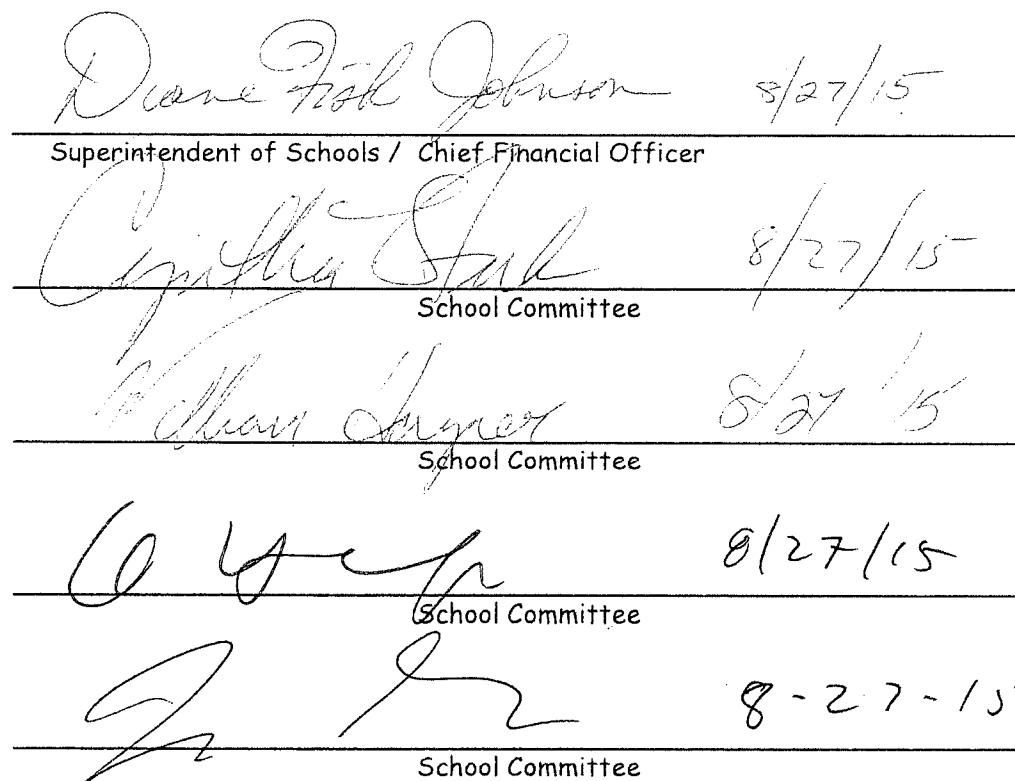 Diane Fish Johnson 8/27/15
Superintendent of Schools / Chief Financial Officer
Cynthia Stark 8/27/15
School Committee
William 8/27/15
School Committee
8/27/15
School Committee
8-27-15
School Committee